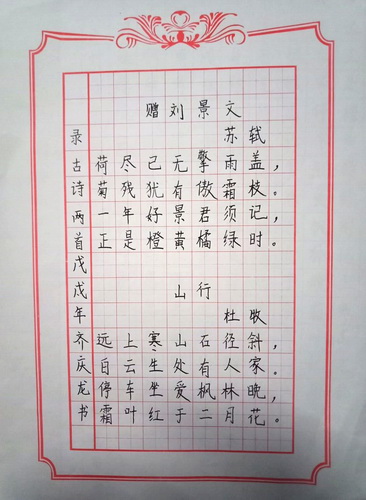 赠刘景文
苏轼
荷尽已无擎雨盖，
菊残犹有傲霜枝。
一年好景君须记，
正是橙黄橘绿时。
山行
杜牧
远上寒山石径斜，
白云生处有人家。
停车坐爱枫林晚，
霜叶红于二月花。
录古诗两首戊戌年齐庆龙书